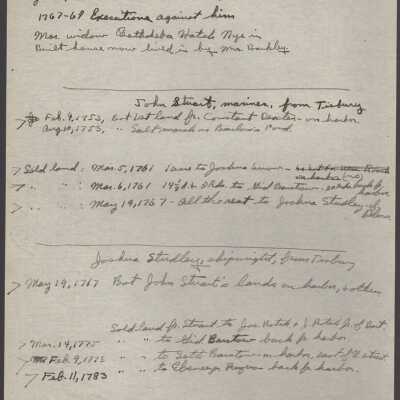 1767-68 Executions against him
Mar. widow Bathsheba Hatch Nye in
Built house now lived in by Mrs. Barkley.
John Stuart, mariner, from Tisbury
Feb. 9, 1753, Bot 1st land fr. Constant Dexter - on harbor
Aug. 10, 1753, " Salt marsh on Barlow's Pond.
Sold land: Mar. 5, 1761 1 acre to Joshua
on harbor
" " Mar. 6, 1761 to Gid Barstow - back fr. harbor
" " May 19, 1767 - All the rest to Joshua Studley of
Joshua Studley, shipwright, from Tisbury
May 19, 1767 Bot John Stuart's lands on harbor, & others
Sold land fr. Stuart to Jos. Hatch & J. Hatch Jr. of Dart
Mar. 14, 1775 " " to Gid Barstow back fr. harbor
Feb. 9, " " to Seth Barstow - on harbor, east of street
Feb. 11, 1783 " " to Ebenezer Rogers back fr. harbor.